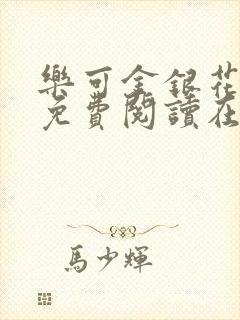 樂可金銀花
免費閱讀在
馬少輝